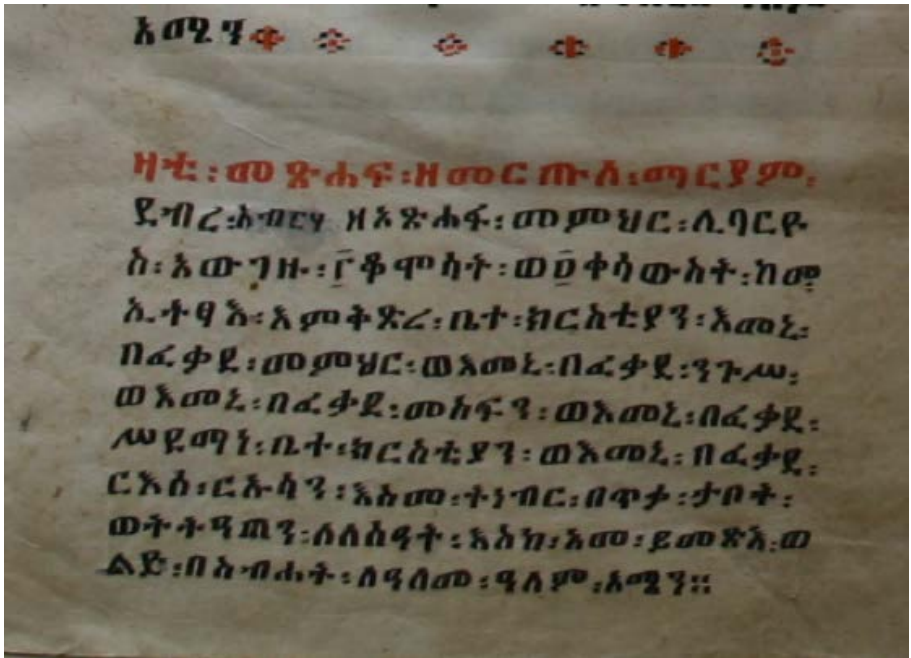 አሜን
ዛቲ፡መጽሐፍ፡ዘመርጡለ፡ማርያም፡
ደብረ፡አብርሃ ዘአጽሐፋ፡መምህር፡ሊባርዮ
ስ፡አውገዙ፡፫ቆሞሳት፡ወ፬ቀሳውስት፡ከመ፡
ኢትፃእ፡እምቅጽረ፡ቤተ፡ክርስቲያን፡እመኒ፡
በፈቃደ፡መምህር፡ወእመኒ፡በፈቃደ፡ንጉሥ፡
ወእመኒ፡በፈቃደ፡መስፍን፡ወእመኒ፡በፈቃደ፡
ሥዩማነ፡ቤተ፡ክርስቲያን፡ወእመኒ፡በፈቃደ፡
ርእሰ፡ርኡሳን፡እስመ፡ተነብር፡በጥቃ፡ታቦት፡
ወትትዓጠን፡ለለሰዓት፡እስከ፡አመ፡ይመጽእ፡ወ
ልድ፡በስብሐት፡ለዓለመ፡ዓለም፡አሜን።